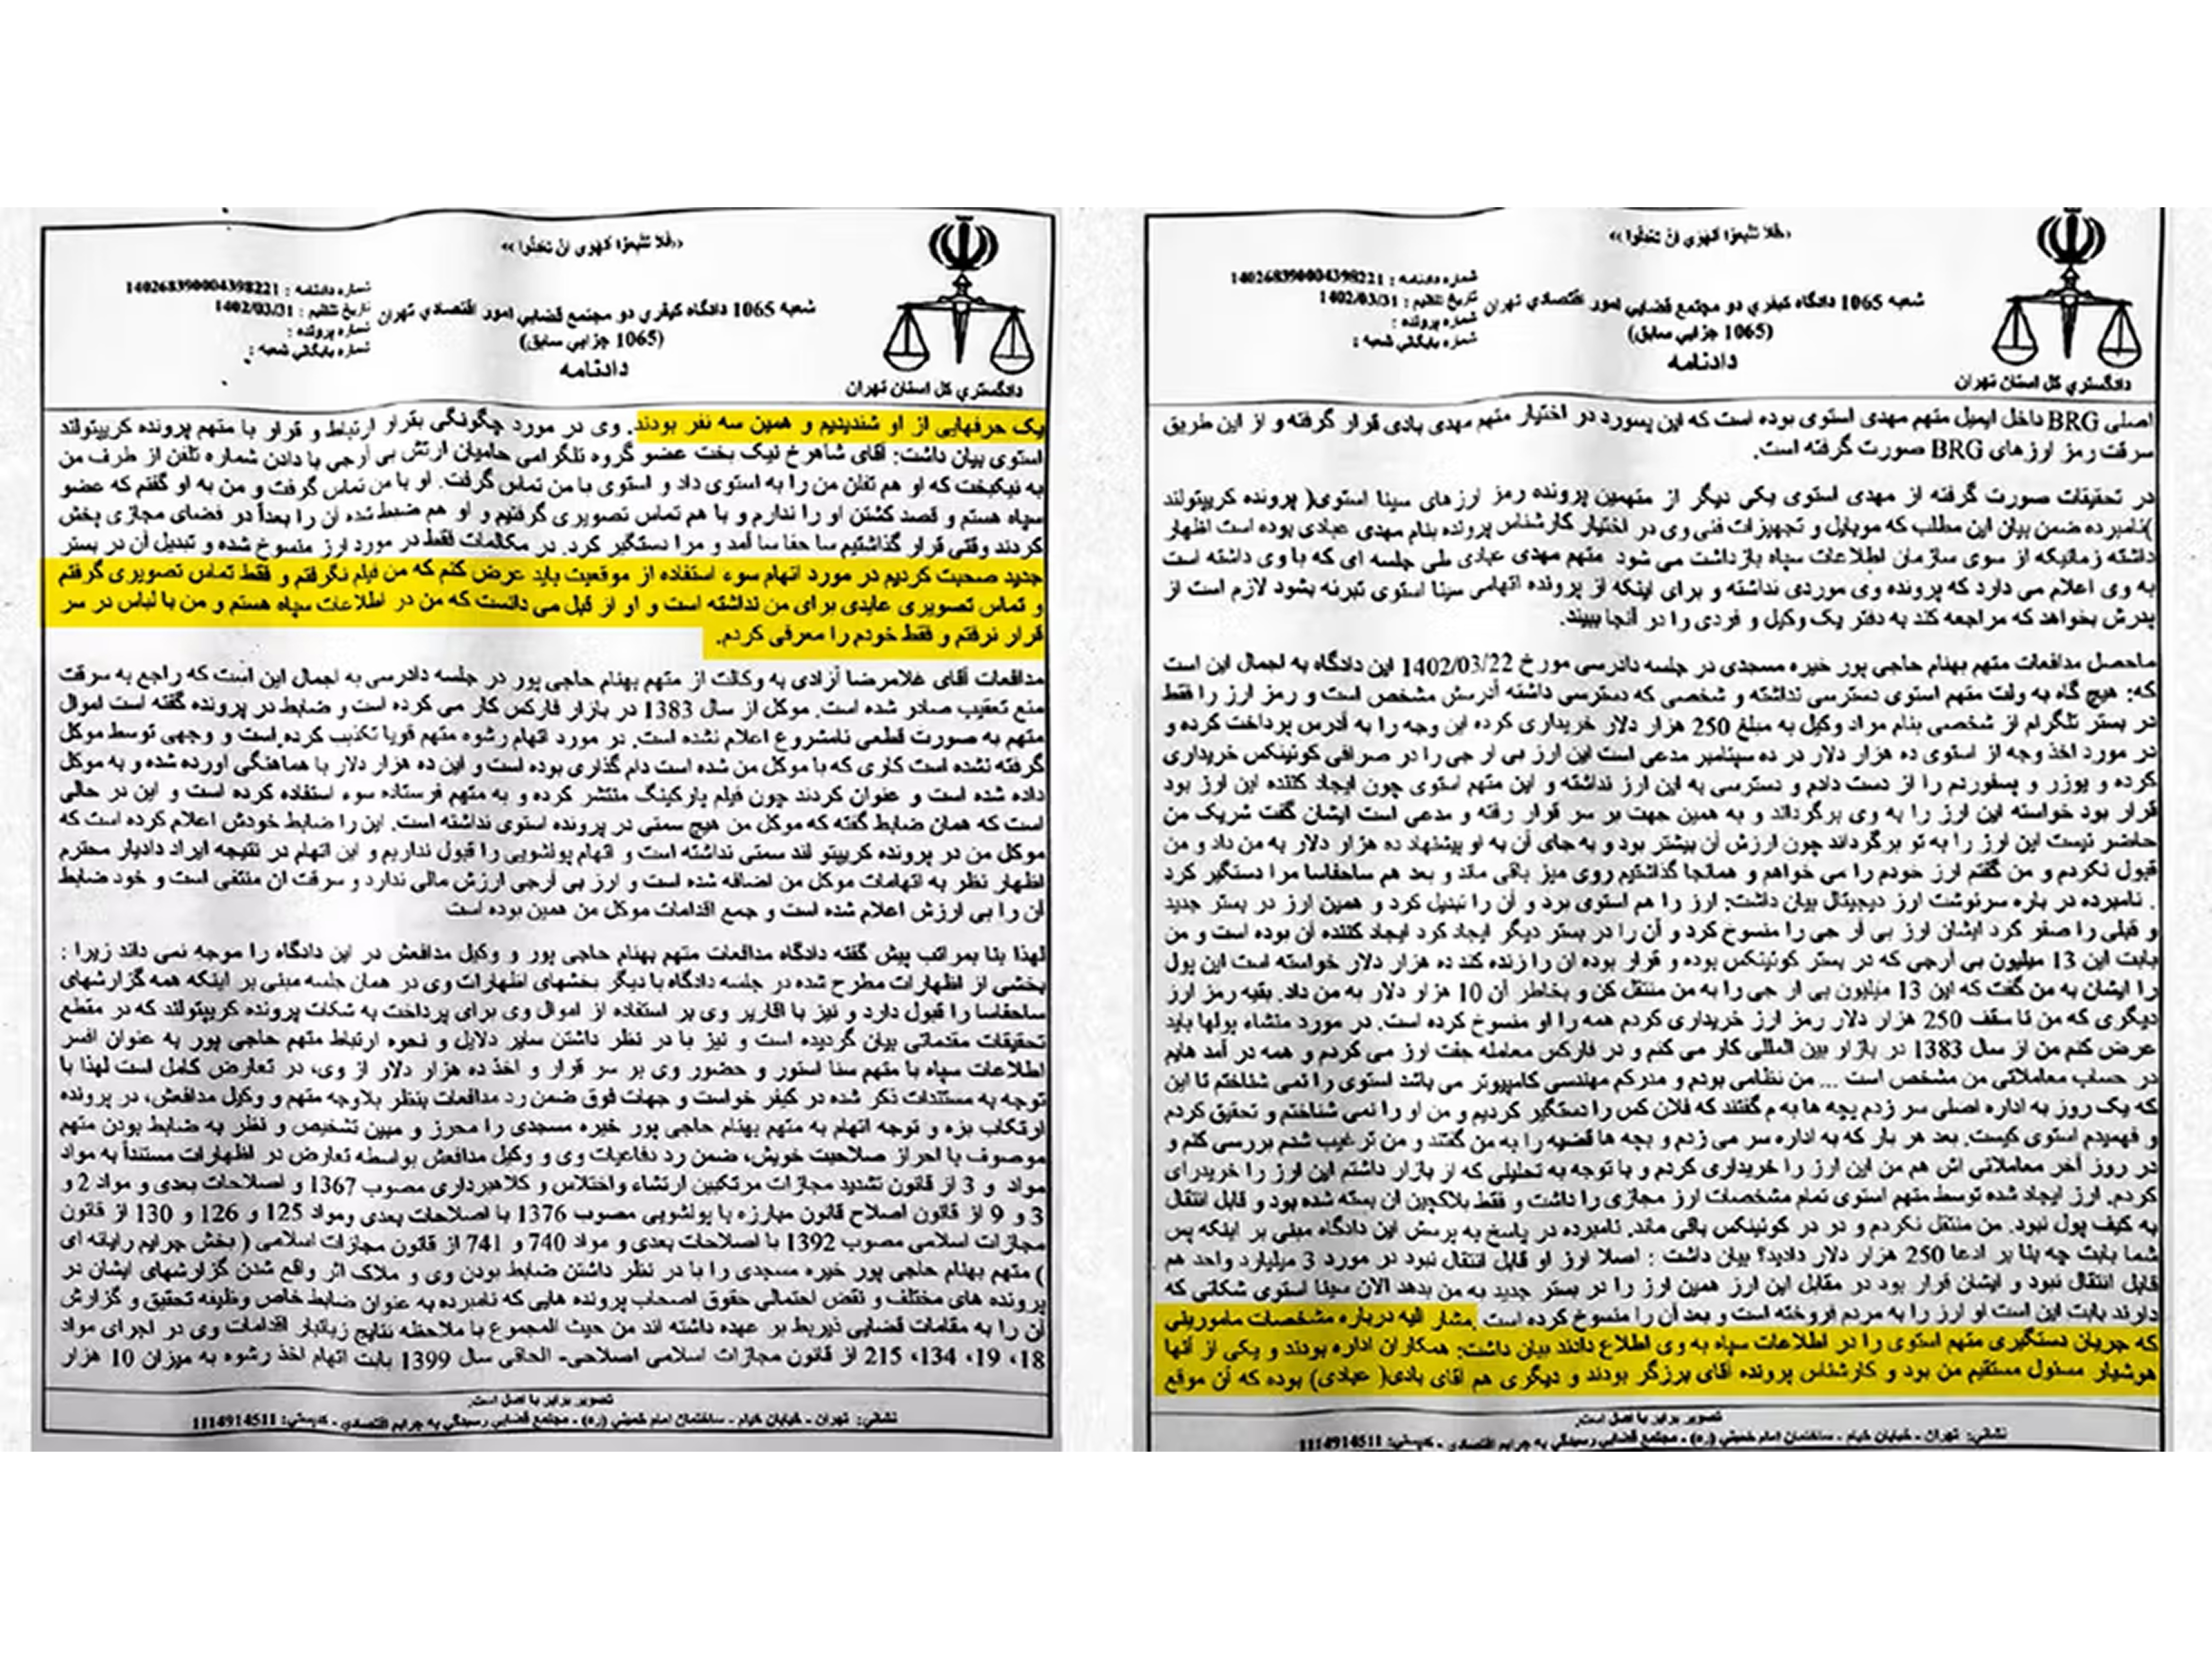 «فلا تتبعوا الهوی ان تعدلوا»
شماره دادنامه : 140268390004398221
تاریخ تنظیم : 1402/03/31
شماره پرونده :
شماره بایگانی شعبه :
شعبه 1065 دادگاه کیفری دو مجتمع قضایی امور اقتصادی تهران
(1065 جزایی سابق)
دادنامه
دادگستری کل استان تهران
اصلی BRG داخل ایمیل متهم مهدی استوی بوده است که این پسورد در اختیار متهم مهدی بادی قرار گرفته و از این طریق
سرقت رمز ارزهای BRG صورت گرفته است.
در تحقیقات صورت گرفته از مهدی استوی یکی دیگر از متهمین پرونده رمز ارزهای سینا استوی( پرونده کریپتولند
)نامبرده ضمن بیان این مطلب که موبایل و تجهیزات فنی وی در اختیار کارشناس پرونده بنام مهدی عبادی بوده است اظهار
داشته زمانیکه از سوی سازمان اطلاعات سپاه بازداشت می شود متهم مهدی عبادی طی جلسه ای که با وی داشته است
به وی اعلام می دارد که پرونده وی موردی نداشته و برای اینکه از پرونده اتهامی سینا استوی تبرئه بشود لازم است از
پدرش بخواهد که مراجعه کند به دفتر یک وکیل و فردی را در آنجا ببیند.
ماحصل مدافعات متهم بهنام حاجی پور خیره مسجدی در جلسه دادرسی مورخ 1402/03/22 این دادگاه به اجمال این است
که: هیچ گاه به ولت متهم استوی دسترسی نداشته و شخصی که دسترسی داشته آدرسش مشخص است و رمز ارز را فقط
در بستر تلگرام از شخصی بنام مراد وکیل به مبلغ 250 هزار دلار خریداری کرده این وجه را به آدرس پرداخت کرده و
در مورد اخذ وجه از استوی ده هزار دلار در ده سپتامبر مدعی است این ارز بی ار جی را در صرافی کوئینکس خریداری
کرده و یوزر و پسفوردم را از دست دادم و دسترسی به این ارز نداشته و این متهم استوی چون ایجاد کننده این ارز بود
قرار بود خواسته این ارز را به وی برگرداند و به همین جهت بر سر قرار رفته و مدعی است ایشان گفت شریک من
حاضر نیست این ارز را به تو برگرداند چون ارزش آن بیشتر بود و به جای آن به او پیشنهاد ده هزار دلار به من داد و من
قبول نکردم و من گفتم ارز خودم را می خواهم و همانجا گذاشتیم روی میز باقی ماند و بعد هم ساحفاسا مرا دستگیر کرد
. نامبرده در باره سرنوشت ارز دیجیتال بیان داشت: ارز را هم استوی برد و آن را تبدیل کرد و همین ارز در بستر جدید
و قبلی را صفر کرد ایشان ارز بی ار جی را منسوخ کرد و آن را در بستر دیگر ایجاد کرد ایجاد کننده آن بوده است و من
بابت این 13 میلیون بی آرجی که در بستر کوئینکس بوده و قرار بوده ان را زنده کند ده هزار دلار خواسته است این پول
را ایشان به من گفت که این 13 میلیون بی ار جی را به من منتقل کن و بخاطر آن 10 هزار دلار به من داد. بقیه رمز ارز
دیگری که من تا سقف 250 هزار دلار رمز ارز خریداری کردم همه را او منسوخ کرده است. در مورد منشاء پولها باید
عرض کنم من از سال 1383 در بازار بین المللی کار می کنم و در فارکس معامله جفت ارز می کردم و همه در آمد هایم
در حساب معاملاتی من مشخص است ... من نظامی بودم و مدرکم مهندسی کامپیوتر می باشد استوی را نمی شناختم تا این
که یک روز به اداره اصلی سر زدم بچه ها به م گفتند که فلان کس را دستگیر کردیم و من او را نمی شناختم و تحقیق کردم
و فهمیدم استوی کیست. بعد هر بار که به اداره سر می زدم و بچه ها قضیه را به من گفتند و من ترغیب شدم بررسی کنم و
در روز آخر معاملاتی اش هم من این ارز را خریداری کردم و با توجه به تحلیلی که از بازار داشتم این ارز را خریدرای
کردم. ارز ایجاد شده توسط متهم استوی تمام مشخصات ارز مجازی را داشت و فقط بلاکچین ان بسته شده بود و قابل انتقال
به کیف پول نبود. من منتقل نکردم و در در کوئینکس باقی ماند. نامبرده در پاسخ به پرسش این دادگاه مبنی بر اینکه پس
شما بابت چه بنا بر ادعا 250 هزار دلار دادید؟ بیان داشت : اصلا ارز او قابل انتقال نبود در مورد 3 میلیارد واحد هم
قابل انتقال نبود و ایشان قرار بود در مقابل این ارز همین ارز را در بستر جدید به من بدهد الان سینا استوی شکاتی که
دارند بابت این است او ارز را به مردم فروخته است و بعد آن را منسوخ کرده است. مشار الیه درباره مشخصات مامورینی
که جریان دستگیری متهم استوی را در اطلاعات سپاه به وی اطلاع دادند بیان داشت: همکاران اداره بودند و یکی از آنها
هوشیار مسئول مستقیم من بود و کارشناس پرونده آقای برزگر بودند و دیگری هم اقای بادی( عبادی) بوده که آن موقع
تصویر برابر با اصل است.
نشانی: تهران - خیابان خیام - ساختمان امام خمینی (ره) - مجتمع قضایی رسیدگی به جرایم اقتصادی - کدپستی: 1114914511
«فلا تتبعوا الهوی ان تعدلوا»
شماره دادنامه : 140268390004398221
تاریخ تنظیم : 1402/03/31
شماره پرونده :
شماره بایگانی شعبه :
شعبه 1065 دادگاه کیفری دو مجتمع قضایی امور اقتصادی تهران
(1065 جزایی سابق)
دادنامه
دادگستری کل استان تهران
یک حرفهایی از او شندیدیم و همین سه نفر بودند. وی در مورد چگونگی بقرار ارتباط و قراو با متهم پرونده کریپتولند
استوی بیان داشت: آقای شاهرخ نیک بخت عضو گروه تلگرامی حامیان ارتش بی آرجی با دادن شماره تلفن از طرف من
به نیکبخت که او هم تفلن من را به استوی داد و استوی با من تماس گرفت. او با من تماس گرفت و من به او گفتم که عضو
سپاه هستم و قصد کشتن او را ندارم و با هم تماس تصویری گرفتیم و او هم ضبط شده آن را بعداً در فضای مجازی پخش
کردند وقتی قرار گذاشتیم سا حفا سا آمد و مرا دستگیر کرد. در مکالمات فقط در مورد ارز منسوخ شده و تبدیل آن در بستر
جدید صحبت کردیم در مورد اتهام سوء استفاده از موقعیت باید عرض کنم که من فیلم نگرفتم و فقط تماس تصویری گرفتم
و تماس تصویری عایدی برای من نداشته است و او از قبل می دانست که من در اطلاعات سپاه هستم و من با لباس در سر
قرار نرفتم و فقط خودم را معرفی کردم.
مدافعات آقای غلامرضا آزادی به وکالت از متهم بهنام حاجی پور در جلسه دادرسی به اجمال این است که راجع به سرقت
منع تعقیب صادر شده است. موکل از سال 1383 در بازار فارکس کار می کرده است و ضابط در پرونده گفته است اموال
متهم به صورت قطعی نامشروع اعلام نشده است. در مورد اتهام رشوه متهم قویا تکذیب کرده است و وجهی توسط موکل
گرفته نشده است کاری که با موکل من شده است دام گذاری بوده است و این ده هزار دلار با هماهنگی اورده شده و به موکل
داده شده است و عنوان کردند چون فیلم پارکینگ منتشر کرده و به متهم فرستاده سوء استفاده کرده است و این در حالی
است که همان ضابط گفته که موکل من هیچ سمتی در پرونده استوی نداشته است. این را ضابط خودش اعلام کرده است که
موکل من در پرونده کریپتو لند سمتی نداشته است و اتهام پولشویی را قبول نداریم و این اتهام در نتیجه ایراد دادیار محترم
اظهار نظر به اتهامات موکل من اضافه شده است و ارز بی آرجی ارزش مالی ندارد و سرقت ان منتفی است و خود ضابط
آن را بی ارزش اعلام شده است و جمع اقدامات موکل من همین بوده است
لهذا بنا بمراتب پیش گفته دادگاه مدافعات متهم بهنام حاجی پور و وکیل مدافعش در این دادگاه را موجه نمی داند زیرا :
بخشی از اظهارات مطرح شده در جلسه دادگاه با دیگر بخشهای اظهارات وی در همان جلسه مبنی بر اینکه همه گزارشهای
ساحفاسا را قبول دارد و نیز با اقاریر وی بر استفاده از اموال وی برای پرداخت به شکات پرونده کریپتولند که در مقطع
تحقیقات مقدماتی بیان گردیده است و نیز با در نظر داشتن سایر دلایل و نحوه ارتباط متهم حاجی پور به عنوان افسر
اطلاعات سپاه با متهم سنا استور و حضور وی بر سر قرار و اخذ ده هزار دلار از وی، در تعارض کامل است لهذا با
توجه به مستندات ذکر شده در کیفر خواست و جهات فوق ضمن رد مدافعات بنظر بلاوجه متهم و وکیل مدافعش، در پرونده
ارتکاب بزه و توجه اتهام به متهم بهنام حاجی پور خیره مسجدی را محرز و مبین تشخیص و نظر به ضابط بودن متهم
موصوف با احراز صلاحیت خویش، ضمن رد دفاعیات وی و وکیل مدافعش بواسطه تعارض در اظهارات مستنداً به مواد
مواد و 3 از قانون تشدید مجازات مرتکبین ارتشاء واختلاس و کلاهبرداری مصوب 1367 و اصلاحات بعدی و مواد 2 و
3 و 9 از قانون اصلاح قانون مبارزه با پولشویی مصوب 1376 با اصلاحات بعدی ومواد 125 و 126 و 130 از قانون
مجازات اسلامی مصوب 1392 با اصلاحات بعدی و مواد 740 و 741 از قانون مجازات اسلامی ( بخش جرایم رایانه ای
) متهم بهنام حاجی پور خیره مسجدی را با در نظر داشتن ضابط بودن وی و ملاک اثر واقع شدن گزارشهای ایشان در
پرونده های مختلف و نقض احتمالی حقوق اصحاب پرونده هایی که نامبرده به عنوان ضابط خاص وظیفه تحقیق و گزارش
آن را به مقامات قضایی ذیربط بر عهده داشته اند من حیث المجموع با ملاحظه نتایج زیانبار اقدامات وی در اجرای مواد
18، 19، 134، 215 از قانون مجازات اسلامی اصلاحی- الحاقی سال 1399 بابت اتهام اخذ رشوه به میزان 10 هزار
تصویر برابر با اصل است.
نشانی: تهران - خیابان خیام - ساختمان امام خمینی (ره) - مجتمع قضایی رسیدگی به جرایم اقتصادی - کدپستی: 1114914511